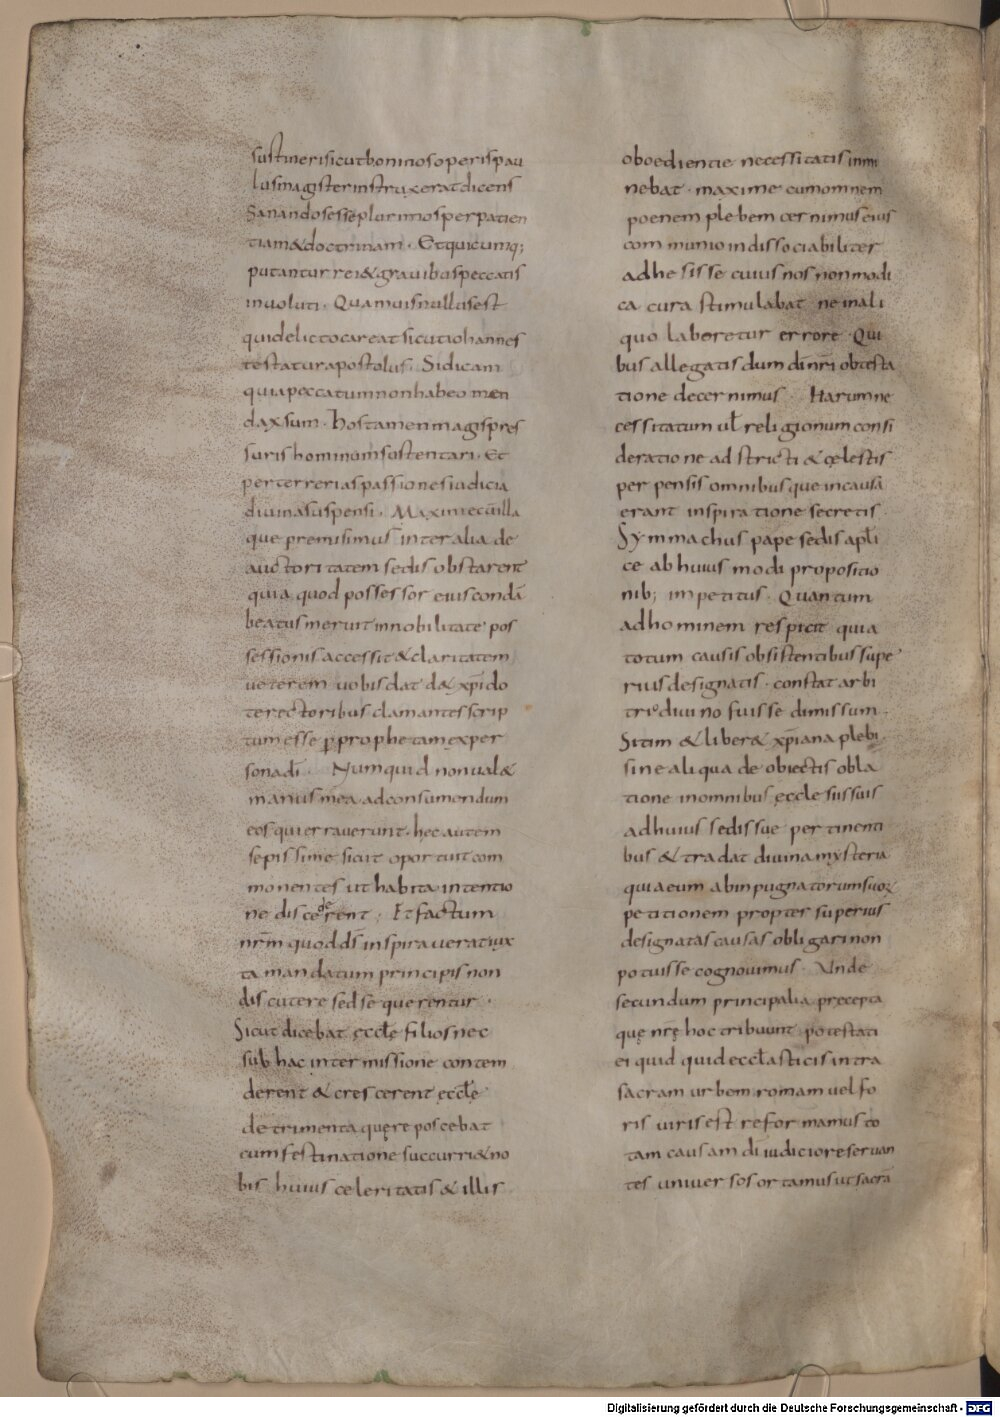 sustineri sicut boni nos operis pau
lus magister instruxerat dicens
Sanandos esse plurimos per patien
tiam & doctrinam . Et quicumq;
putantur rei & grauibus peccatis
inuoluti . Quamuis nullus est
qui delicto careat sicut iohannes
testatur apostolus . Si dicam
quia peccatum non habeo men
dax sum . hos tamen magis pres
suris hominum sustentari . Et
perterreri as passiones iudicia
diuina suspensi . Maxime cū illa
que premisimus inter alia de
auctoritatem sedis obstarent
quia quod possessor eius condā
beatus meruit in nobilitate pos
sessionis accessit & claritatem
ueterem uobis dat d& xp̄i do
te rectoribus clamantes scrip
tum esse p prophetam ex per
sona dī . Numquid non ual&
manus mea ad consumendum
eos qui errauerunt . hec autem
sepissime sicut oportuit com
monentes ut habita intentio
ne discederent ; Et factum
nrm̄ quod ds̄ inspirauerat iux
ta mandatum principis non
discutere sed se querentur .
Sicut dicebat eccłe filios nec
sub hac intermissione contem
derent & crescerent ęccłę
detrimenta quęre poscebat
cum festinatione succurri & no
bis huius celeritatis & illis
oboedientie necessitatis inmi
nebat . maxime cum omnem
poenem plebem cernimus eius
communio indissociabiliter
adhesisse cuius nos non modi
ca cura stimulabat ne in ali
quo laboretur errore . Qui
bus allegatis dum dn̄i nr̄i obtesta
tione decernimus . Harum ne
cessitatum uł religionum consi
deratione adstricti & cęlestis
perpensis omnibus que in causā
erant inspiratione secretis .
Symmachus pape sedis apłi
ce ab huius modi propositio
nib; impetitus . Quantum
ad hominem respicit quia
totum causis obsistentibus supe
rius designatis . constat arbi
trio diuino fuisse dimissum .
Sitim & liber& xp̄iana plebi
sine aliqua de obiectis obla
tione in omnibus ęcclesiis suis
ad huius sedis sue pertinenti
bus & tradat diuina mysteria
quia eum ab inpugnatorum suoꝝ
petitionem propter superius
designatas causas obligari non
potuisse cognouimus . Unde
secundum principalia precepta
quę nrę̄ hoc tribuunt potestati
ei quid quid eccłasticis intra
sacram urbem romam uel fo
ris uiris est reformamus to
tam causam dī iudicio reseruan
tes uniuersos ortamus ut sacrā
Digitalisierung gefördert durch die Deutsche Forschungsgemeinschaft - DFG